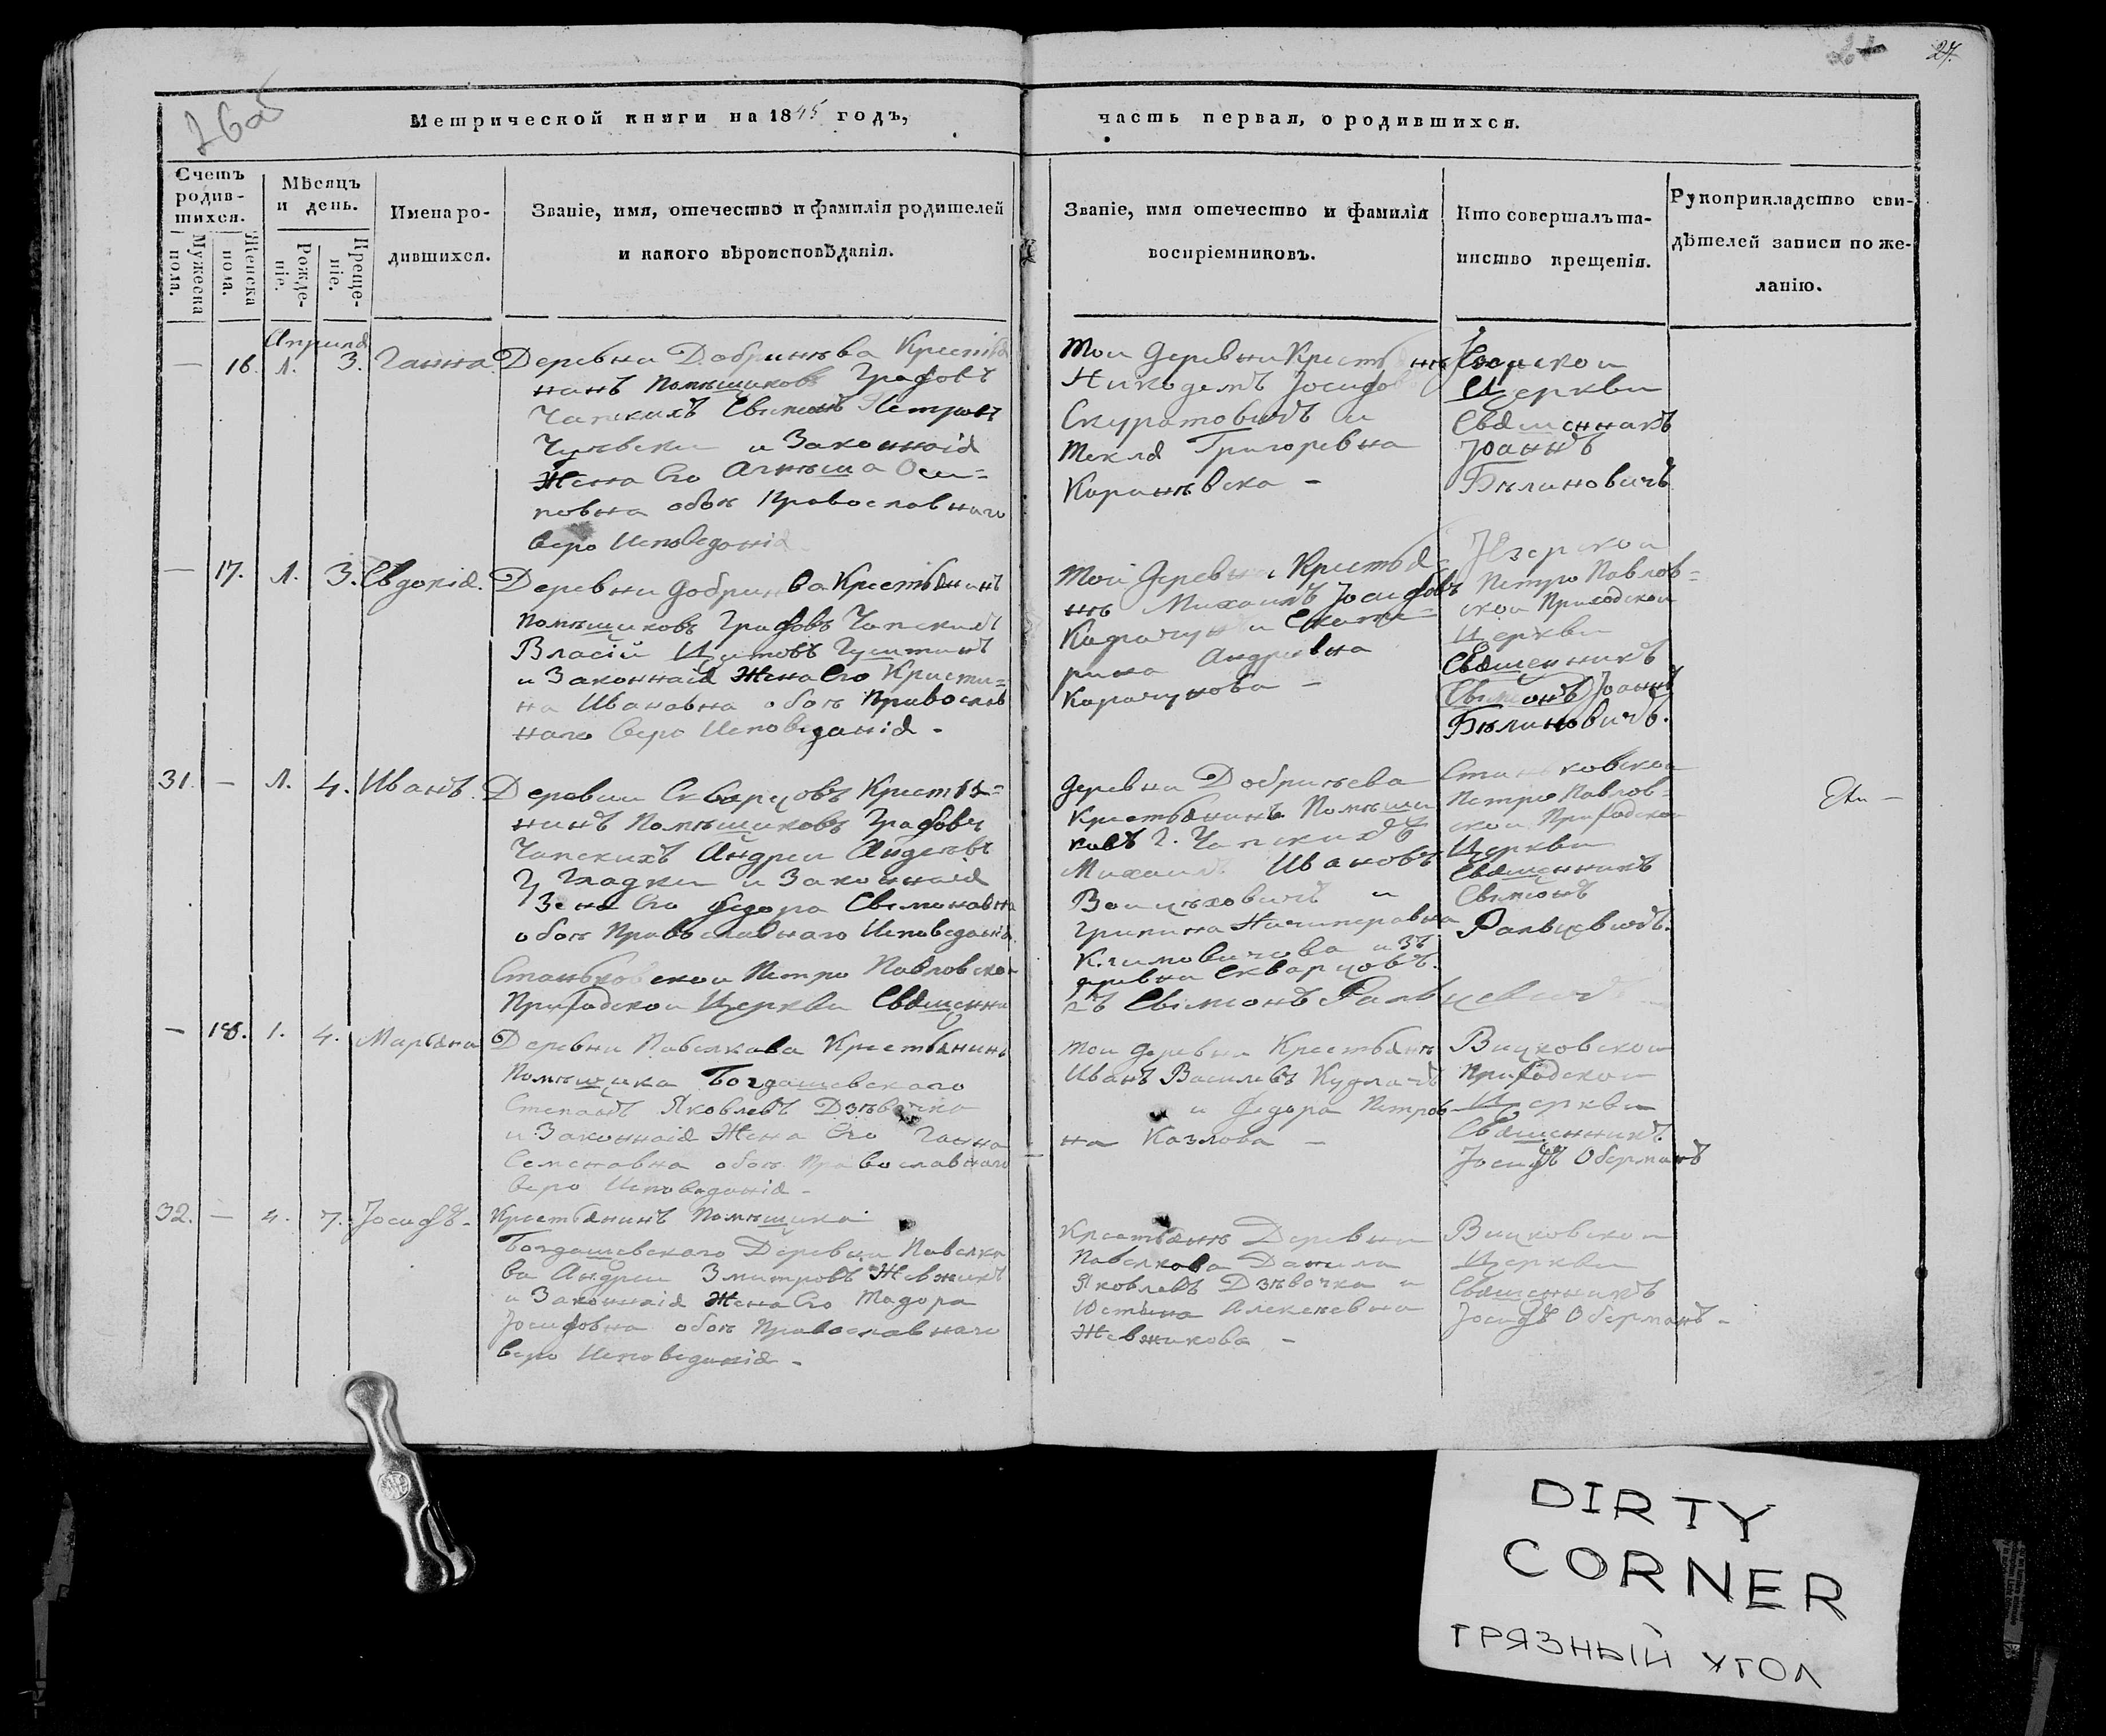 27.
26об
Метрической книги на 1845 годъ,
часть первая, о родившихся.
Счетъ родив-шихся.
Мужеска пола.
Женска пола.
Мѣсяцъ и день.
Рожде-ніе.
Креще-ніе.
Имена ро-
дившихся.
Званіе, имя, отечество и фамилія родителей
и какого вѣроисповѣданія.
Званіе, имя отечество и фамилія
воспріемниковъ.
Кто совершалъ та-
инство крещенія.
Рукоприкладство сви-
дѣтелей записи по же-
ланію.
Априля
— 16. 1. 3. Ганна
Деревни Добринева Крестья
нинъ Помѣщиковъ Графовъ
Чапскихъ Свимонъ Петровъ
и Законная
Жена Его Агнеша Оси=
повна обоя Православнаго
веро Исповеданія
Тои Деревни
Никодемъ Іосифов
Скуратовичъ и
Текля Григоревна
Церкви
Священникъ
Іоаннъ
Бѣлиновичъ
— 17. 1. 3. Евдокія.
Деревни Добринева Крестьянинъ
Помѣщиковъ Графовъ Чапскихъ
Власій
и Законная Жена Его Кристи=
на Ивановна обоя Православ
наго веро Исповеданія -
Тои Деревни Крестья
нъ Михаилъ Іосифовъ
и Екате=
рина Андреевна
Карачунова -
Петро Павлов=
скои Приходскои
Церкви
Священникъ
Свимонъ Іоаннъ
Бѣлиновичъ.
31. — 1. 4. Иванъ.
Деревни Скварцовъ Крестья=
нинъ Помѣщиковъ Графовъ
Чапскихъ Андреи
Гладки и Законная
Жена Его Федора Свимоновна
обоя Православнаго Исповеданія
Станьковскои Петро Павловскои
Приходскои Церкви Священни
Деревни Добринева
Крестьянинъ Помѣщи
ковъ Г. Чапскихъ
Михаилъ Ивановъ
Воицеховичъ и
Грипина Ничипоровна
Климовичова изъ
Деревни Скварцовъ.
къ Свимонъ Ральцевичъ
Станьковскои
Петро Павлов=
скои Приходскои
Церкви
Священникъ
Свимонъ
Ральцевичъ.
— 18. 1. 4. Марьяна
Деревни Павелкова Крестьянинъ
Помѣщика Богдашевскаго
Степанъ Яковлевъ Дзѣвочка
и Законная Жена Его Ганна
Семеновна обоя Православнаго
веро Исповеданія -
Тои Деревни Крестьянъ
Иванъ Василевъ
и Федора Петров
на Казлова -
Вицковскои
Приходскои
Церкви
Священникъ
Іосифъ Оберманъ
32. — 4. 7. Іосифъ -
Крестьянинъ Помѣщика
Богдашевскаго Деревни Павелко
ва Андреи Змитровъ Жевжикъ
и Законная Жена Его Тадора
Іосифовна обоя Православнаго
веро Исповеданія -
Крестьянъ Деревни
Павелкова Данила
Яковлевъ Дзѣвочка и
Юстына Алексеевна
Жевжикова -
Вицковскои
Церкви
Священникъ
Іосифъ Оберманъ -
DIRTY
CORNER
ГРЯЗНЫЙ УГОЛ